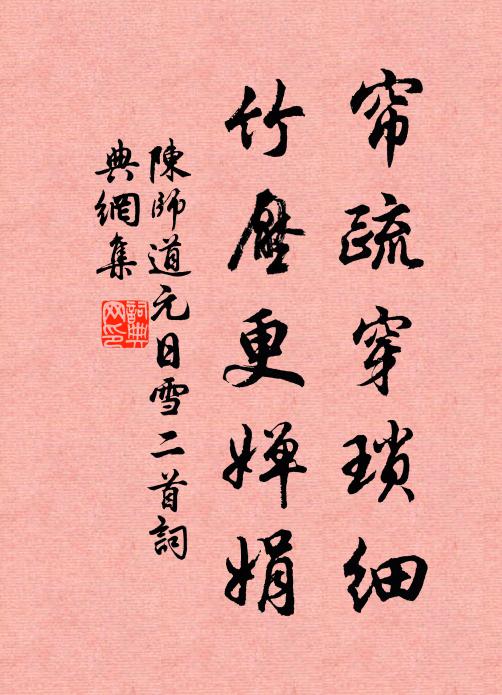 帘疏穿琐细
竹壓更婵娟
陳師道元日雪二首詞
典網集
詞典網印